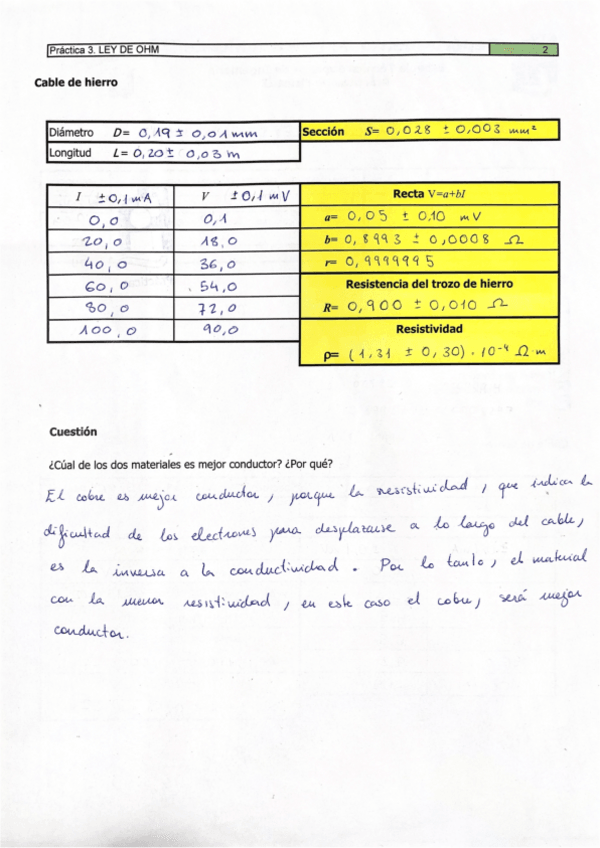 Práctica 3. LEY DE OHM 2
Cable de hierro
Diámetro D= 0,19 ± 0,01 mm Sección S= 0,028 ± 0,003 mm²
Longitud L= 0,20 ± 0,03 m
I ±0,1 mA V ±0,1 mV Recta V=a+bI
0,0 0,1 a= 0,05 ± 0,10 mV
20,0 18,0 b= 0,8993 ± 0,0008 Ω
40,0 36,0 r= 0,9999995
60,0 54,0 Resistencia del trozo de hierro
80,0 72,0 R= 0,900 ± 0,010 Ω
100,0 90,0 Resistividad
ρ= (1,31 ± 0,30) · 10⁻⁴ Ω m
Cuestión
¿Cúal de los dos materiales es mejor conductor? ¿Por qué?
El cobre es mejor conductor, porque la resistividad, que indica la
dificultad de los electrones para desplazarse a lo largo del cable,
es la inversa a la conductividad. Por lo tanto, el material
con la menor resistividad, en este caso el cobre, será mejor
conductor.